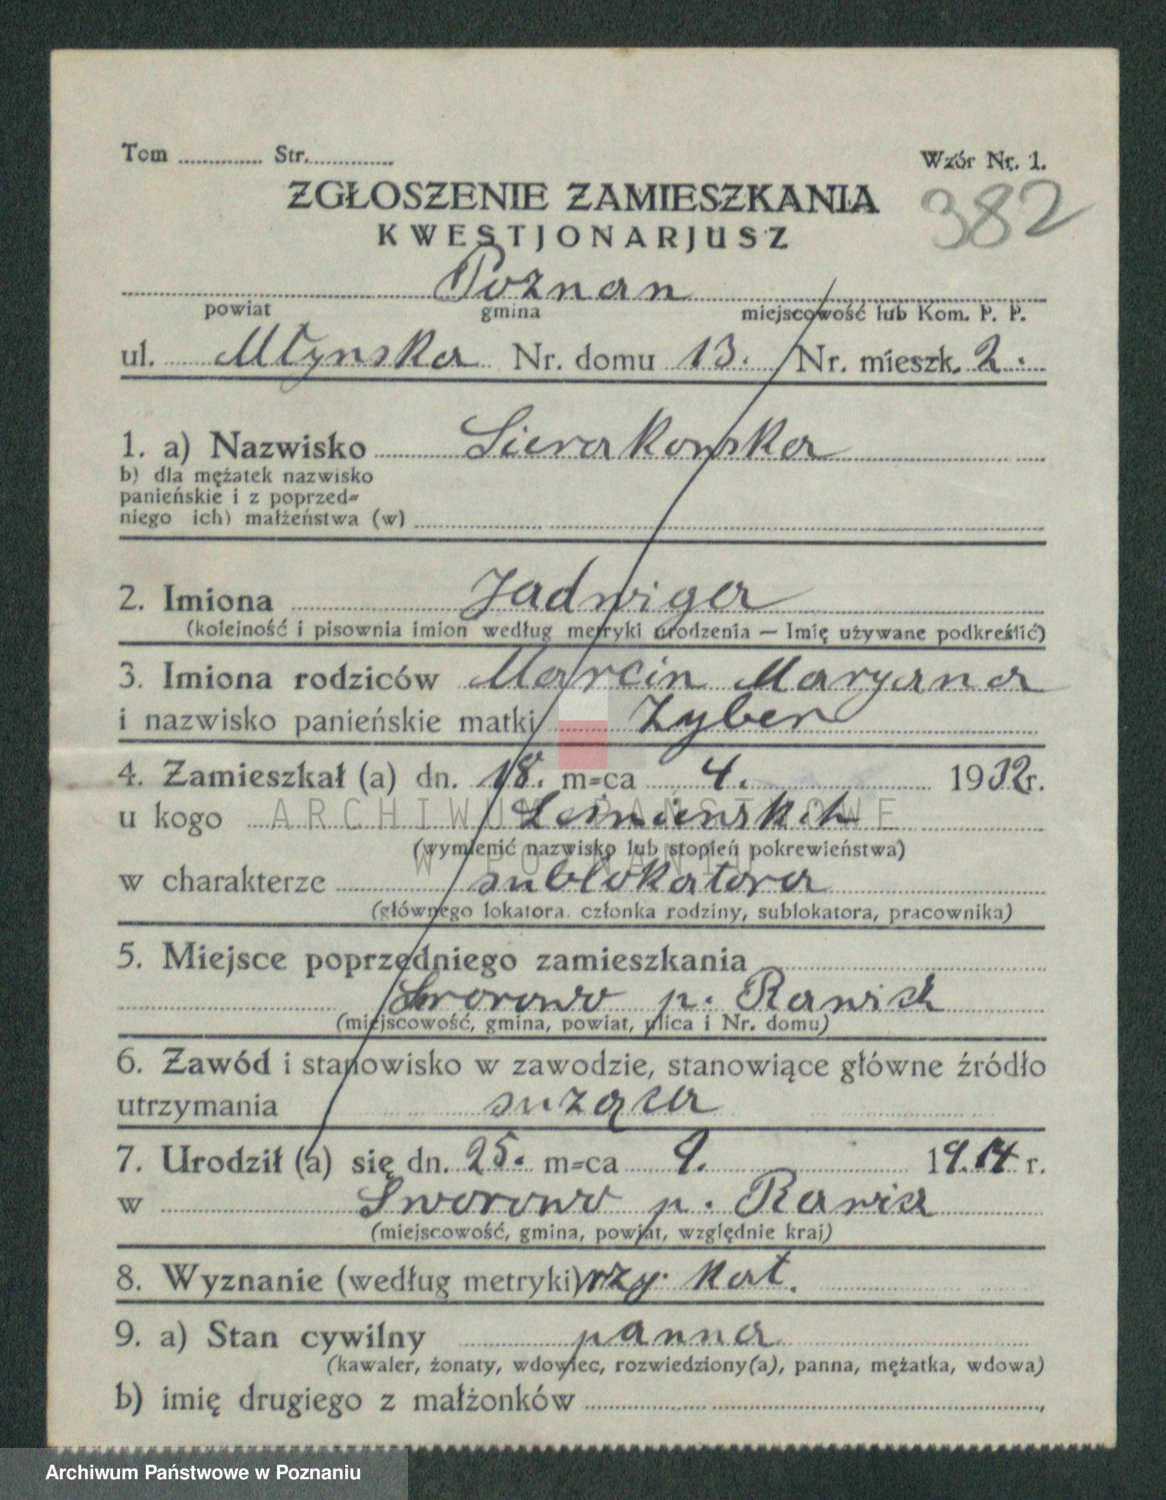 Tom ............. Str..............
Wzór Nr. 1.
ZGŁOSZENIE ZAMIESZKANIA
382
KWESTJONARJUSZ
Poznan
powiat gmina miejscowość lub Kom. P. P.
ul. Młynska Nr. domu 13. Nr. mieszk. 2.
1. a) Nazwisko Sierakowska
b) dla mężatek nazwisko
panieńskie i z poprzed-
niego ich) małżeństwa (w)
2. Imiona Jadwiga
(kolejność i pisownia imion według metryki urodzenia — Imię używane podkreślić)
3. Imiona rodziców Marcin Maryana
i nazwisko panieńskie matki Zyber
4. Zamieszkał (a) dn. 18. m-ca 4. 1932 r.
ARCHIWUM PAŃSTWOWE
u kogo
(wymienić nazwisko lub stopień pokrewieństwa)
W POZNANIU
w charakterze sublokatora
(głównego lokatora, członka rodziny, sublokatora, pracownika)
5. Miejsce poprzedniego zamieszkania
Sworowo p. Rawicz
(miejscowość, gmina, powiat, ulica i Nr. domu)
6. Zawód i stanowisko w zawodzie, stanowiące główne źródło
utrzymania suząca
7. Urodził (a) się dn. 25. m-ca 9. 19.14 r.
w Sworowo p. Rawicz
(miejscowość, gmina, powiat, względnie kraj)
8. Wyznanie (według metryki) rzy. kat.
9. a) Stan cywilny panna
(kawaler, żonaty, wdowiec, rozwiedziony(a), panna, mężatka, wdowa)
b) imię drugiego z małżonków
Archiwum Państwowe w Poznaniu